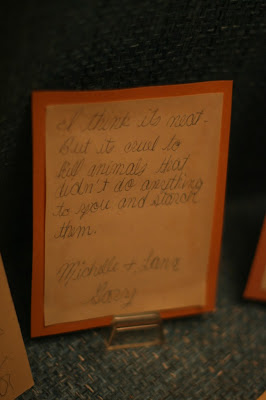 I think its neat.
But it cruel to
kill animals that
didn't do anything
to you and starch
them.
Michelle + Lana
Gary